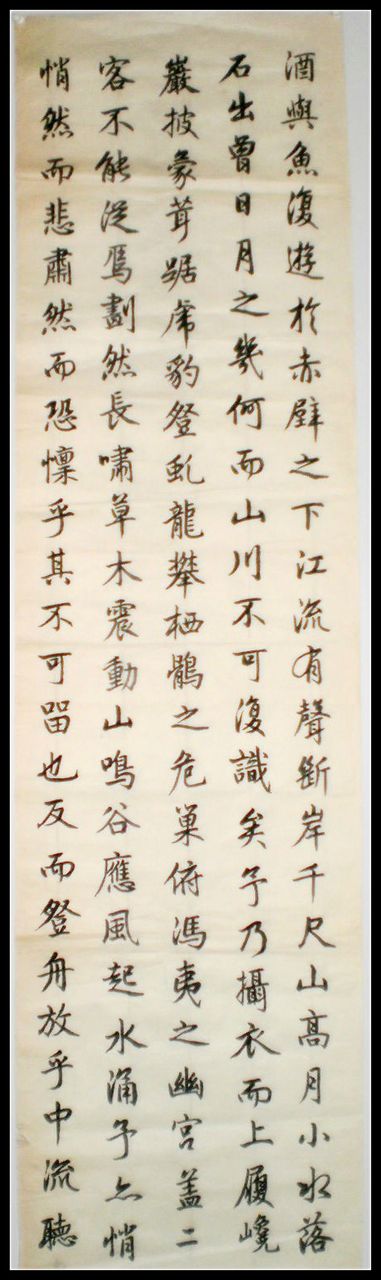 酒與魚復遊於赤壁之下江流有聲斷岸千尺山高月小水落
石出曾日月之幾何而山川不可復識矣予乃攝衣而上履巉
巖披蒙茸踞虎豹登虬龍攀栖鶻之危巢俯馮夷之幽宮蓋二
客不能從焉劃然長嘯草木震動山鳴谷應風起水涌予亦悄
悄然而悲肅然而恐懍乎其不可留也反而登舟放乎中流聽